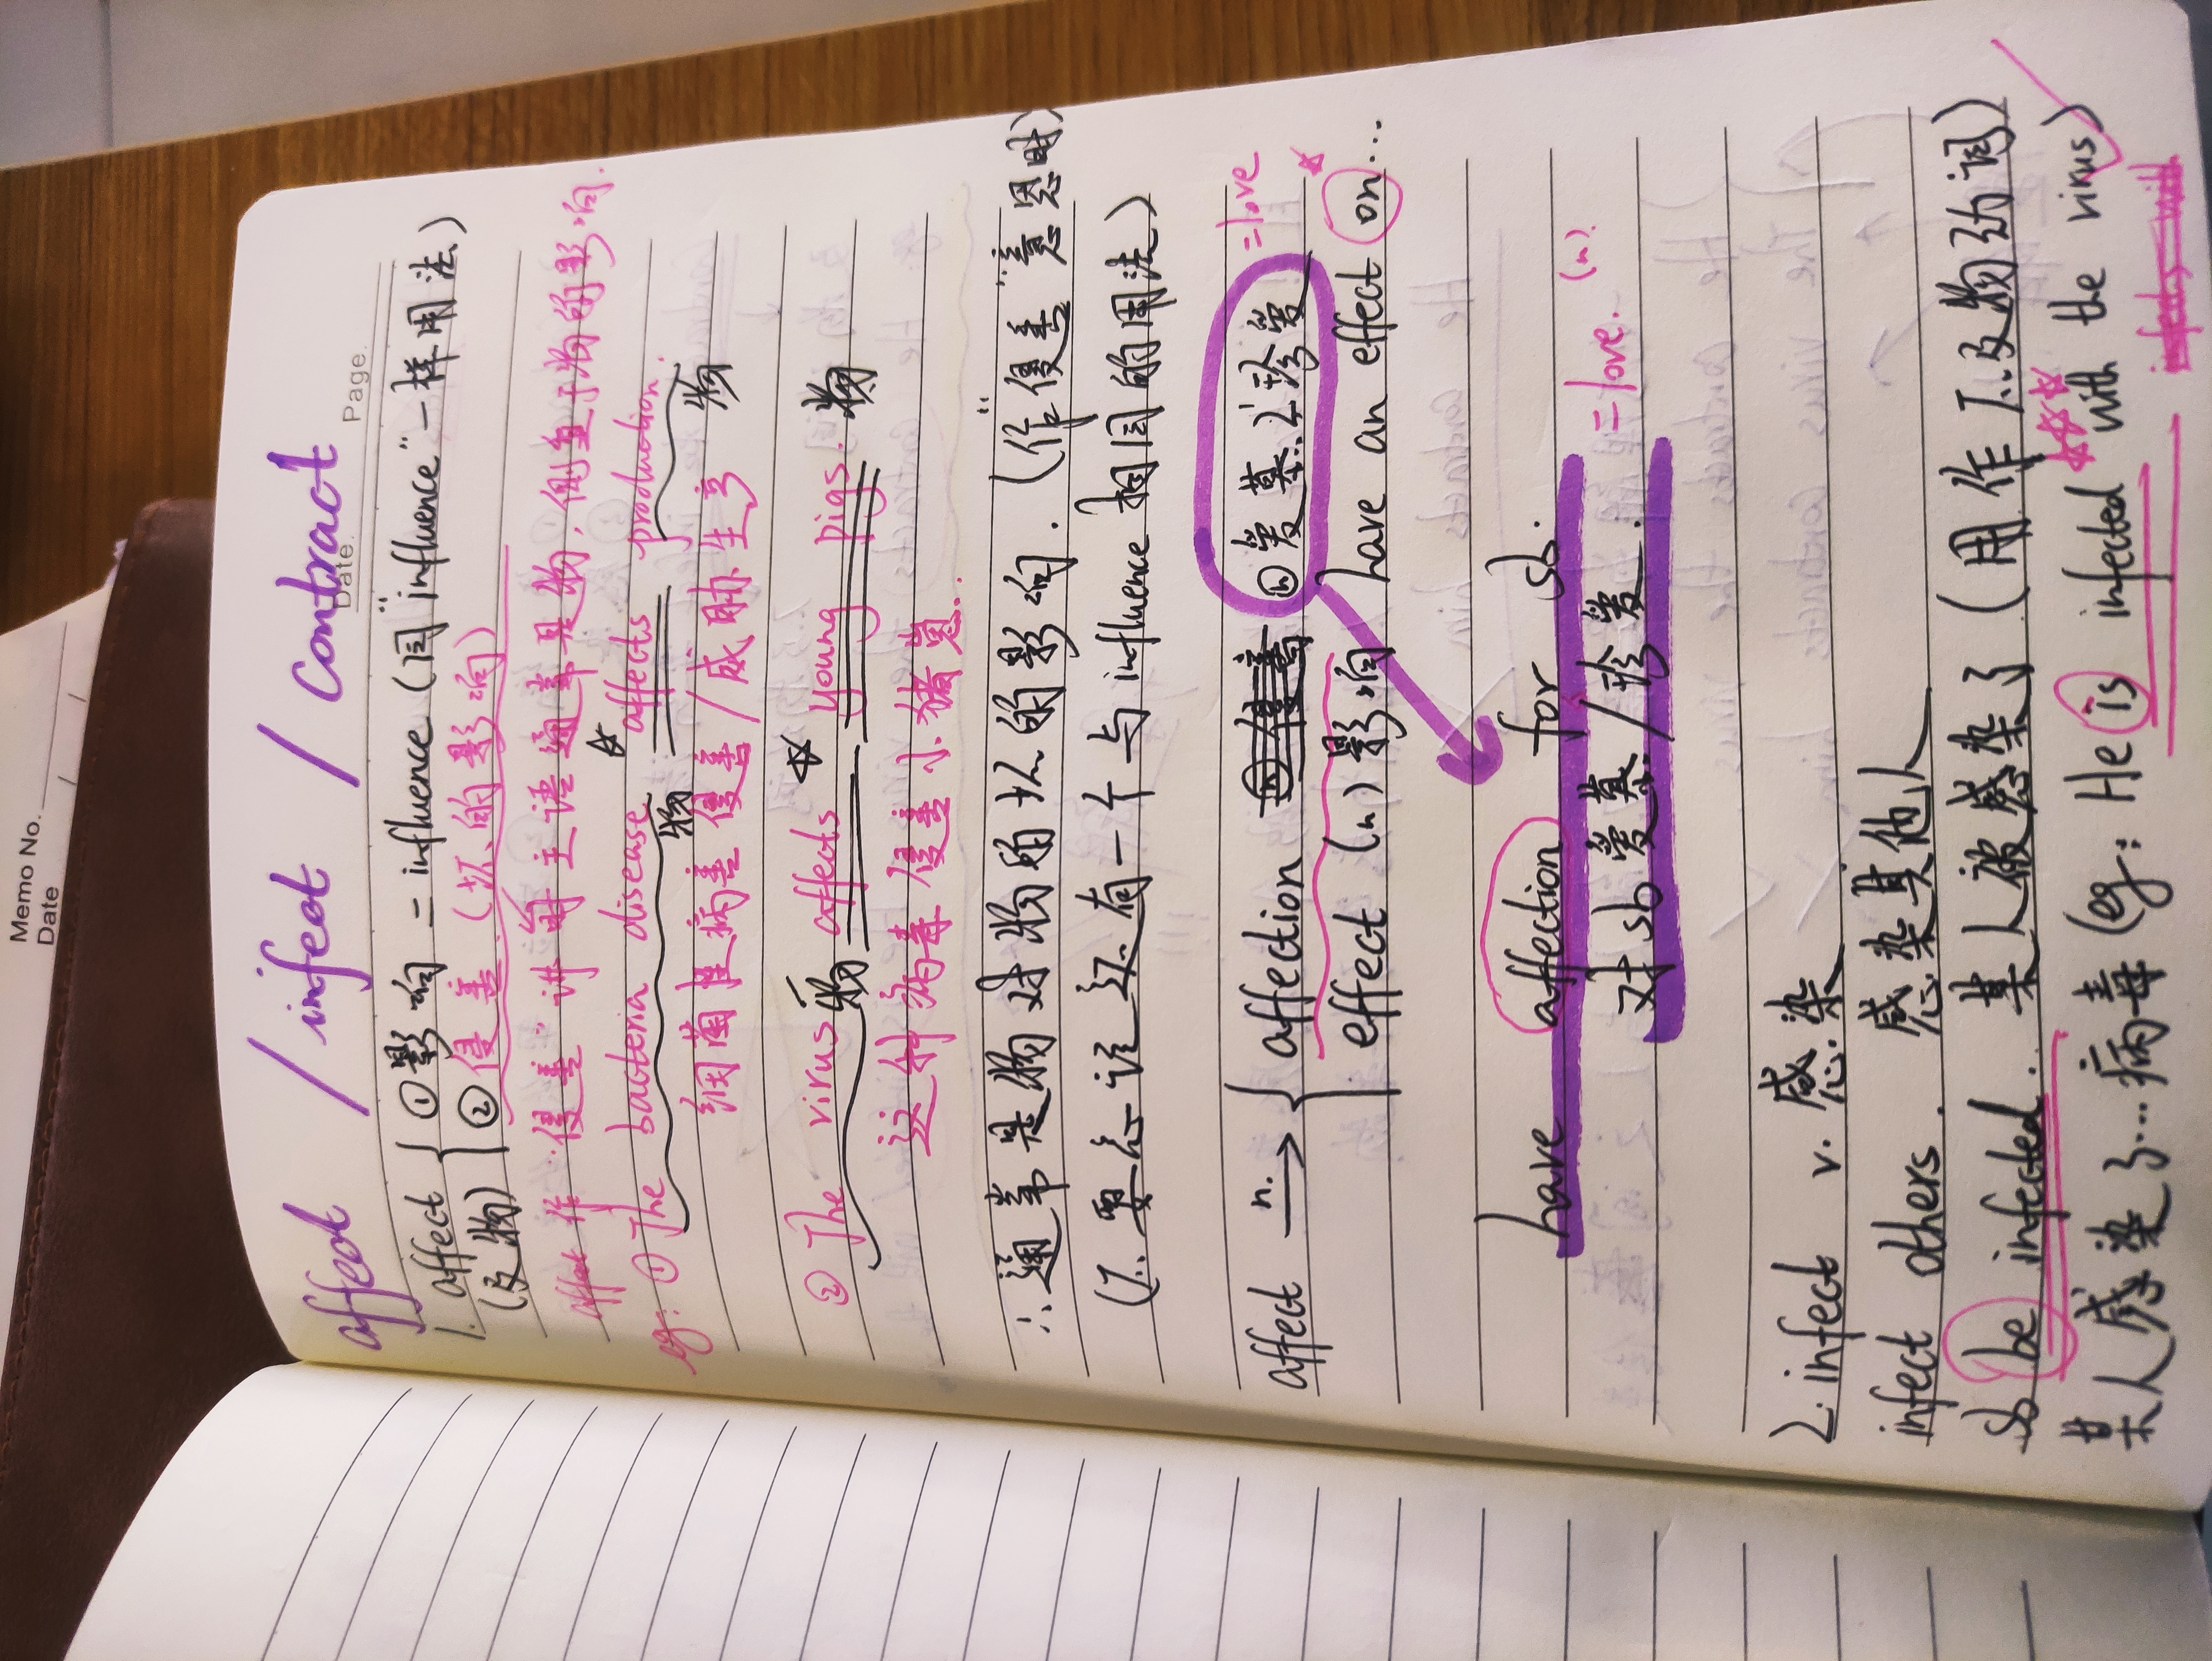 Memo No.
Date / /
affect / infect / contract
Date. Page.
1. affect { ①影响 = influence (同"influence"一样用法)
(及物) ②侵害 (坏的影响)
作"侵害"讲时主语通常是物,侧重于物的影响.
eg: ① The bacteria disease affects production.
物 ☆ 物
细菌性病害侵害/威胁生产
② The virus affects young pigs.
物 ☆ 物
这种病毒侵害小猪崽.
∴通常是物对物的坏的影响. (作"侵害"意思时)
(不要忘记还有一个与influence相同的用法)
affect n.→ { affection ⓝ爱慕之珍爱 =love
effect (n) 影响 have an effect on...
have affection for sb.
对sb爱慕/珍爱. =love. (n).
2. infect v. 感染
infect others. 感染其他人
sb be infected. 某人被感染了 (用作不及物动词)
某人感染了...病毒 (eg: He is infected with the virus)